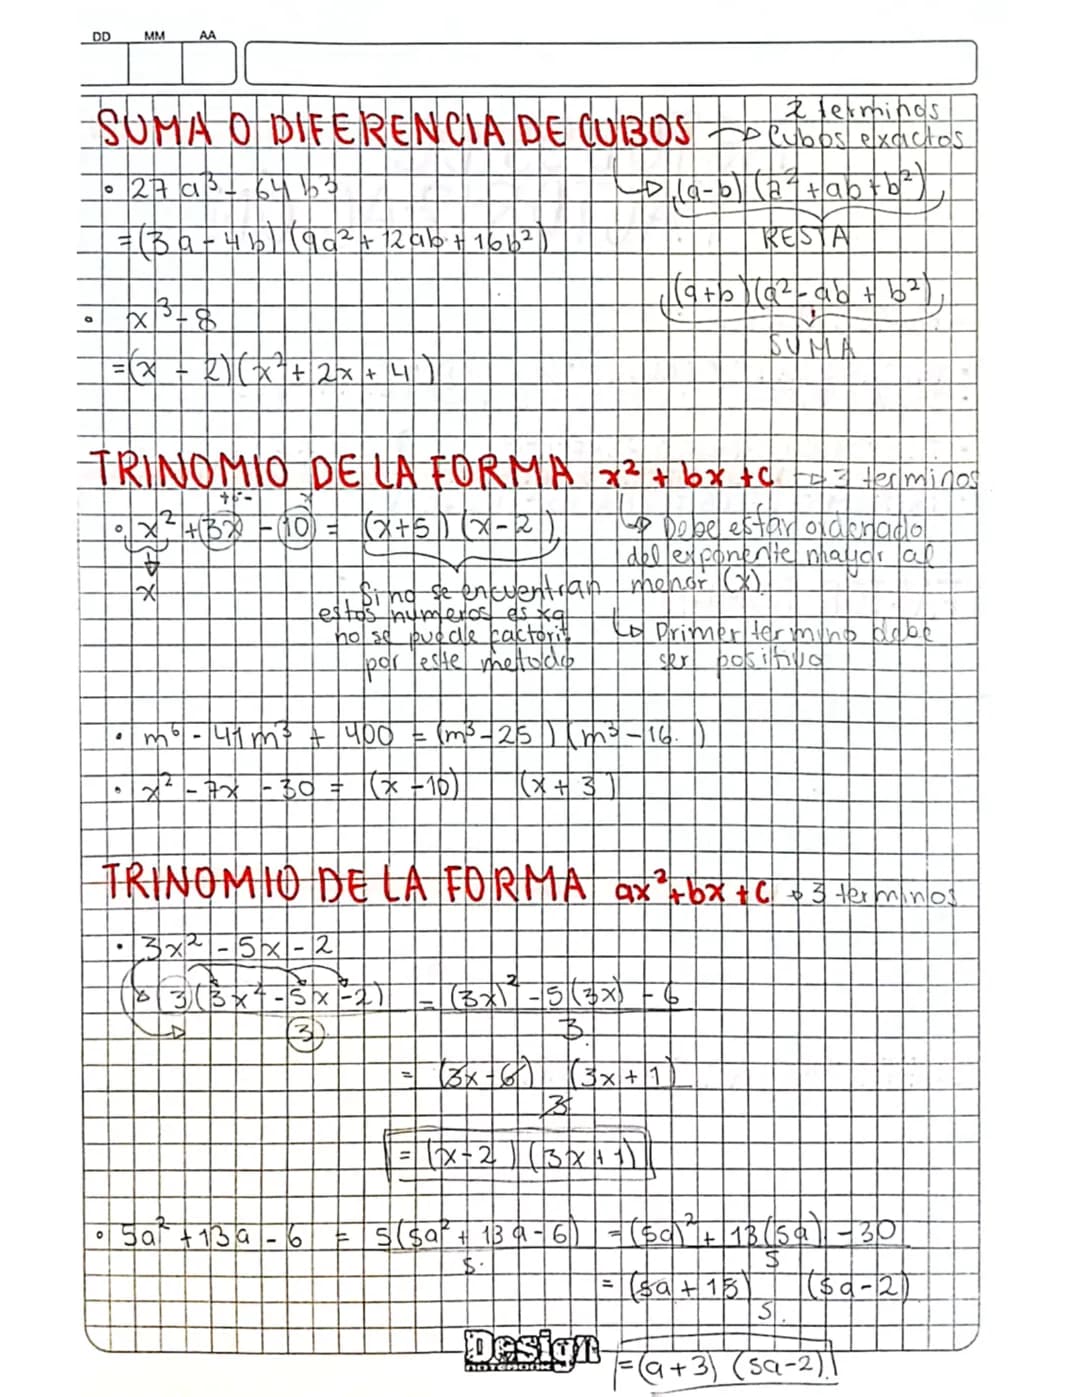 DD MM AA
SUMA O DIFERENCIA DE CUBOS → 2 terminos
Cubos exactos
• 27a³ - 64b³
↳ (a-b)(a²+ab+b²)
RESTA
=(3a-4b)(9a²+12ab+16b²)
(a+b)(a²-ab+b²)
SUMA
• x³-8
=(x-2)(x²+2x+4)
TRINOMIO DE LA FORMA x²+bx+c → 3 terminos
+ó- x
• x²+3x-10 = (x+5)(x-2)
x
Si no se encuentran
estos numeros es xq
no se puede factoriz
por este metodo
↳ Debe estar ordenado
del exponente mayor al
menor (x).
↳ Primer termino debe
ser positivo
• m⁶-41m³+400 = (m³-25)(m³-16.)
• x²-7x-30 = (x-10) (x+3)
TRINOMIO DE LA FORMA ax²+bx+c → 3 terminos
• 3x²-5x-2
3(3x²-5x-2) = (3x)²-5(3x)-6
3 3.
= (3x-6) (3x+1)
3
= (x-2)(3x+1)
• 5a²+13a-6 = 5(5a²+13a-6) = (5a)²+13(5a)-30
5. 5
= (5a+15) (5a-2)
5.
= (a+3)(5a-2)
Design